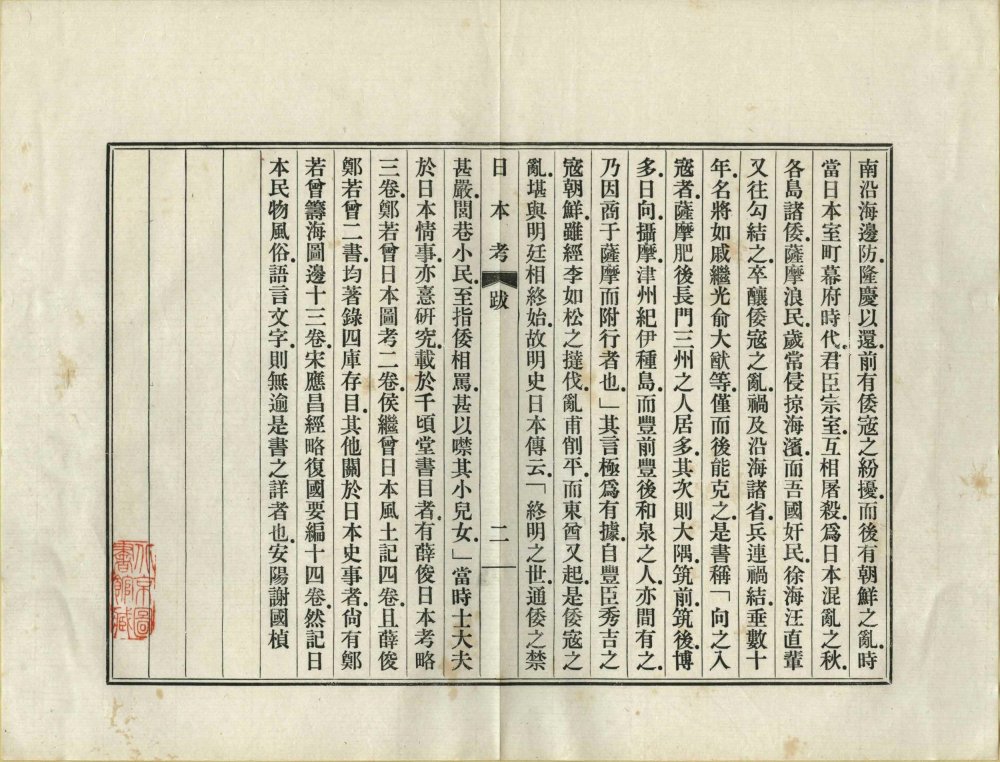 南沿海邊防隆慶以還前有倭寇之紛擾而後有朝鮮之亂時
當日本室町幕府時代君臣宗室互相屠殺爲日本混亂之秋
各島諸倭薩摩浪民歲常侵掠海濱而吾國奸民徐海汪直輩
又往勾結之卒釀倭寇之亂禍及沿海諸省兵連禍結垂數十
年名將如戚繼光俞大猷等僅而後能克之是書稱「向之入
寇者薩摩肥後長門三州之人居多其次則大隅筑前筑後博
多日向攝摩津州紀伊種島而豐前豐後和泉之人亦間有之
乃因商于薩摩而附行者也」其言極爲有據自豐臣秀吉之
寇朝鮮雖經李如松之撻伐亂甫削平而東酋又起是倭寇之
亂堪與明廷相終始故明史日本傳云「終明之世通倭之禁
日本考 跋 二
甚嚴閭巷小民至指倭相罵甚以噤其小兒女」當時士大夫
於日本情事亦憙研究載於千頃堂書目者有薛俊日本考略
三卷鄭若曾日本圖考二卷侯繼曾日本風土記四卷且薛俊
鄭若曾二書均著錄四庫存目其他關於日本史事者尙有鄭
若曾籌海圖邊十三卷宋應昌經略復國要編十四卷然記日
本民物風俗語言文字則無逾是書之詳者也安陽謝國楨
北京圖書館藏